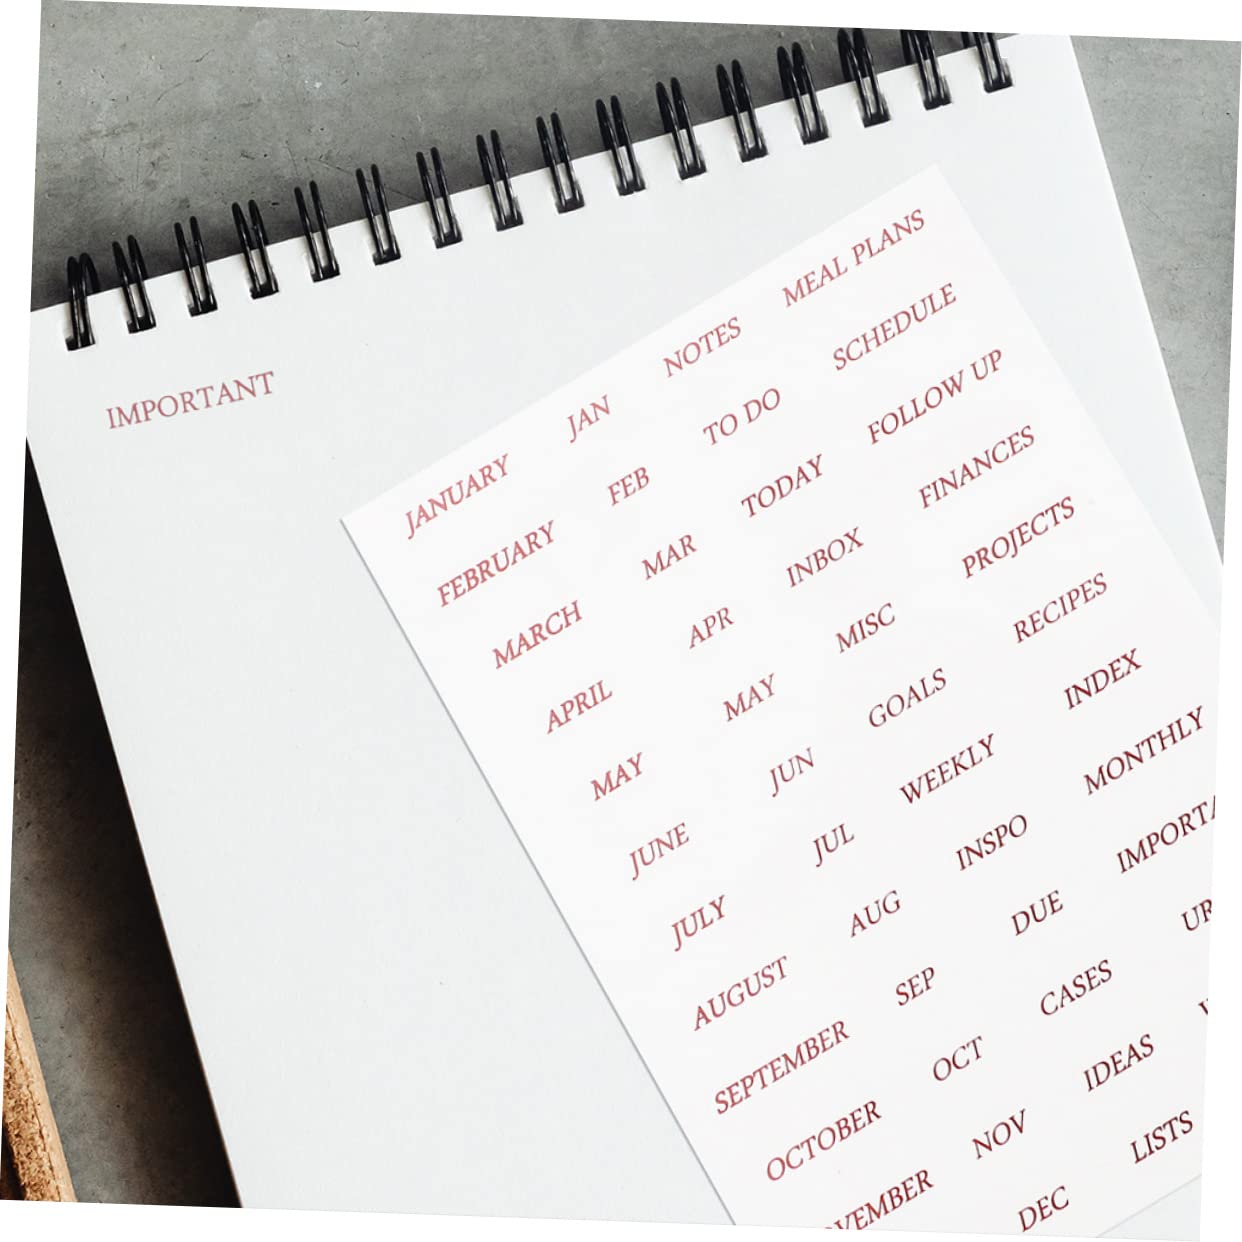 IMPORTANT
JANUARY JAN NOTES MEAL PLANS
FEBRUARY FEB TO DO SCHEDULE
MARCH MAR TODAY FOLLOW UP
APRIL APR INBOX FINANCES
MAY MAY MISC PROJECTS
JUNE JUN GOALS RECIPES
JULY JUL WEEKLY INDEX
AUGUST AUG INSPO MONTHLY
SEPTEMBER SEP DUE IMPORTA
OCTOBER OCT CASES UR
VEMBER NOV IDEAS
DEC LISTS